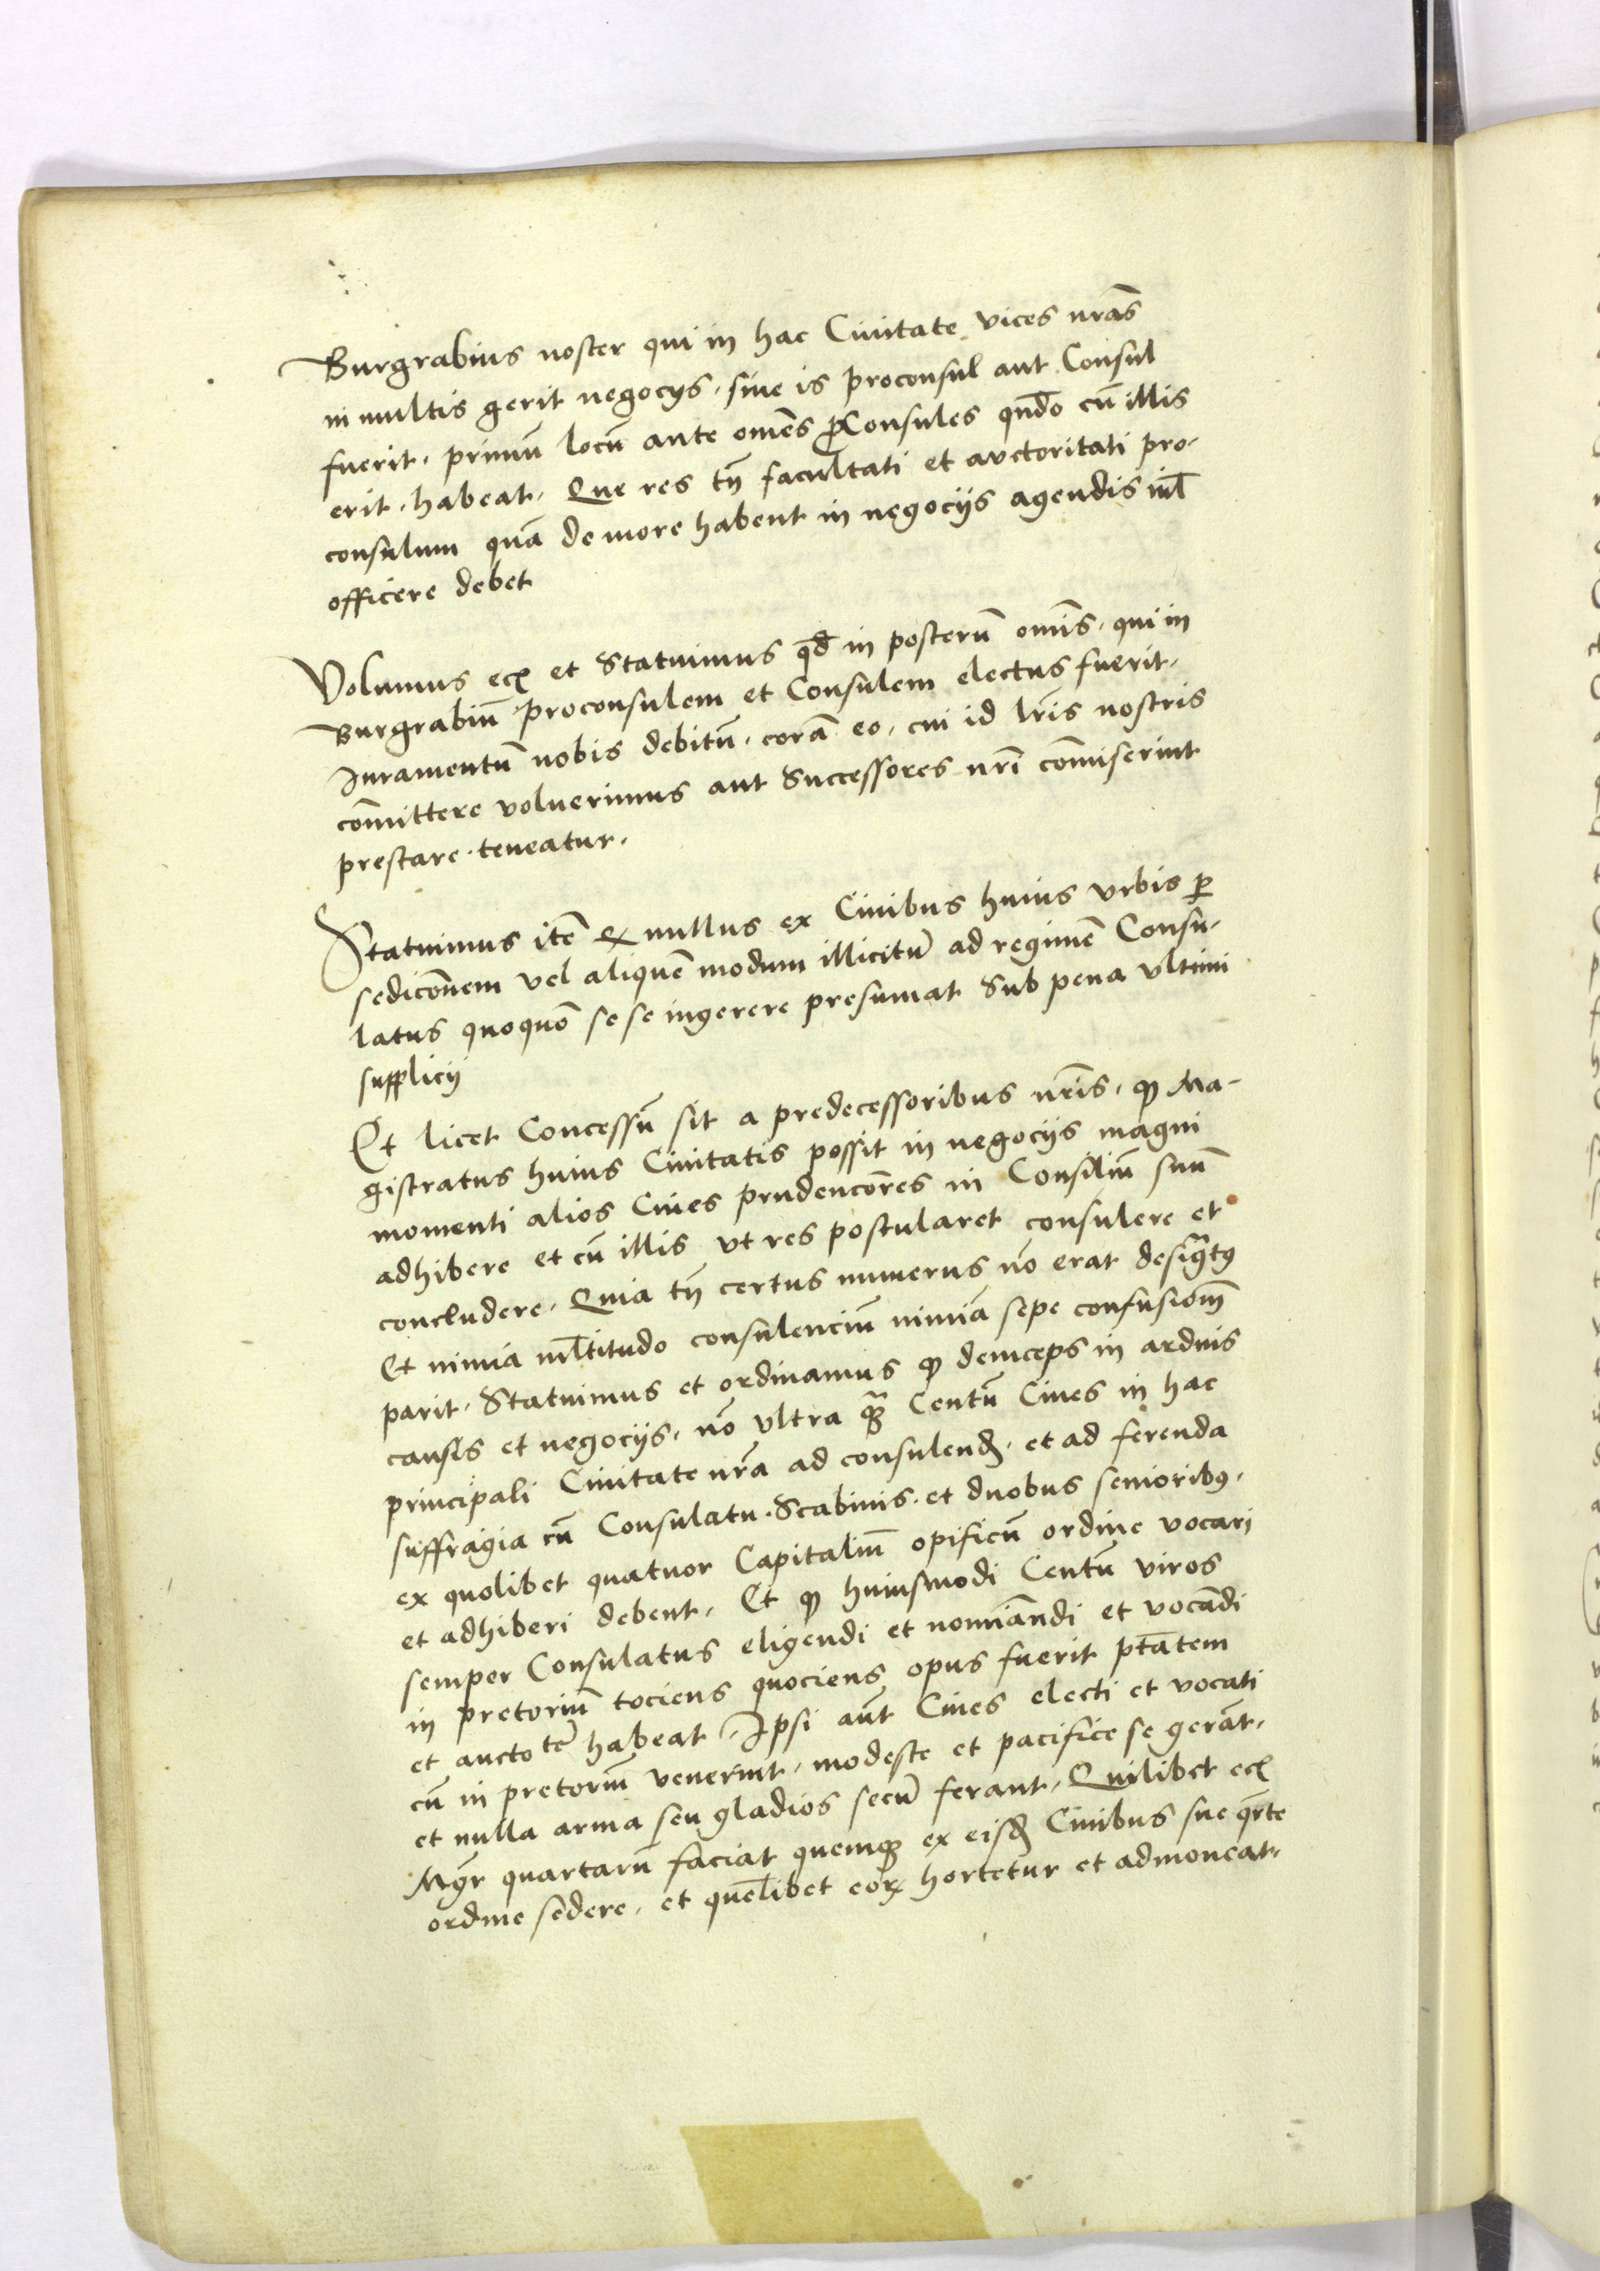 Burgrabius noster qui in hac Ciuitate vices nr̃as
in multis gerit negocys, siue is proconsul aut Consul
fuerit, primũ locũ ante om̃es ꝓConsules qñdo cũ illis
erit, habeat, Que res tñ facultati et auctoritati pro-
consulum quã de more habent in negocijs agendis nil̃
officere debet
Volumus ecꝫ et Statuimus qd̃ in posterũ om̃is, qui in
Burgrabiũ Proconsulem et Consulem electus fuerit,
Juramentũ nobis debitũ, corã eo, cui id lr̃is nostris
com̃ittere voluerimus aut Successores nr̃i com̃iserint
prestare teneatur.
Statuimus itẽ ꝙ nullus ex Ciuibus huius vrbis ꝑ
sedicõnem vel aliquẽ modum illicitũ ad regimẽ Consu-
latus quoquõ se se ingerere presumat Sub pena vltimi
supplicij
Et licet Concessũ sit a predecessoribus nr̃is, ꝙ Ma-
gistratus huius Ciuitatis possit in negocijs magni
momenti alios Ciues prudenciõres in Consiliũ suũ
adhibere et cũ illis vt res postularet consulere et
concludere, Quia tñ certus numerus nõ erat desigr̃atꝰ
Et nimia ml̃titudo consulenciũ nimiã sepe confusionẽ
parit, Statuimus et ordinamus ꝙ deinceps in arduis
causis et negocijs, nõ vltra ꝙ̃ Centũ Ciues in hac
principali Ciuitate nr̃a ad consulendꝫ, et ad ferenda
suffragia cũ Consulatu, Scabinis, et duobus senioribꝰ,
ex quolibet quatuor Capitaliũ opificũ ordine vocari
et adhiberi debent, Et ꝙ huiusmodi Centũ viros
semper Consulatus eligendi et nomiãndi et vocãdi
in pretoriũ tociens quociens opus fuerit ptãtem
et auctotẽ habeat, Ipsi aũt Ciues electi et vocati
cũ in pretoriũ venerint, modeste et pacifice se gerãt,
et nulla arma seu gladios secũ ferant, Quilibet ecꝫ
Mgr̃ quartarũ faciat quemqꝫ ex eisdꝫ Ciuibus sue qr̃te
ordine sedere, et quel̃ibet eoꝝ hortetur et admoneat,